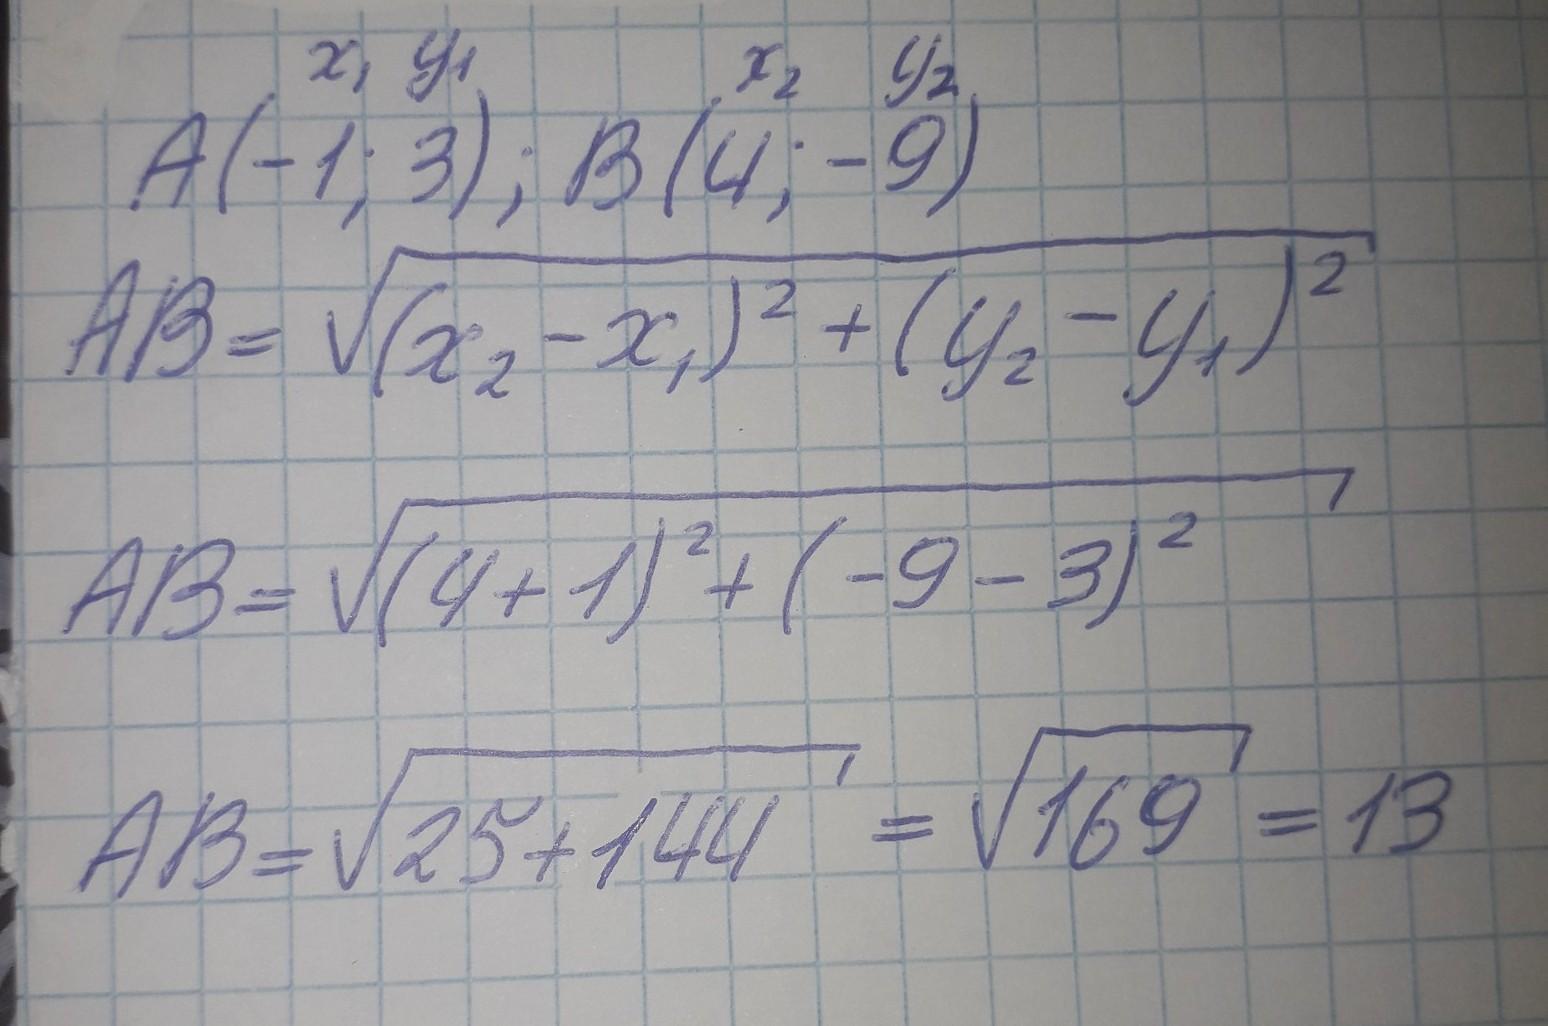 x₁ y₁ x₂ y₂
A(-1; 3); B(4; -9)
AB = √((x₂ - x₁)² + (y₂ - y₁)²)
AB = √((4 + 1)² + (-9 - 3)²)
AB = √(25 + 144) = √169 = 13